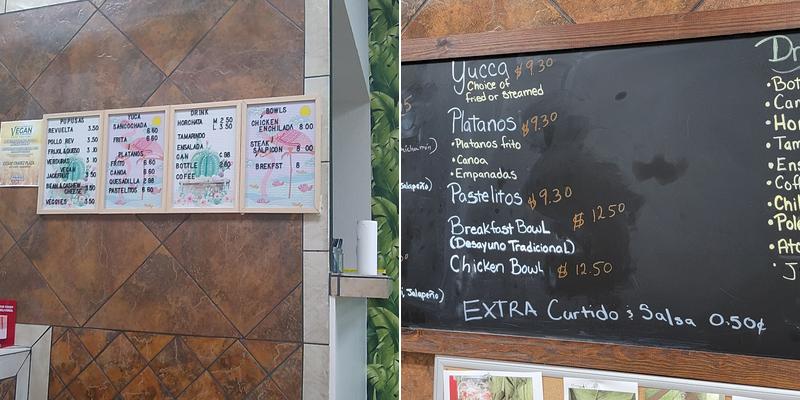 VEGAN
CESAR CHAVEZ PLAZA
PUPUSAS
REVUELTA 3.50
POLLO REV 3.50
FRIJOL&QUESO 3.10
VERDURAS 3.10
VEGAN
JACKFRUIT 3.50
BEAN&CASHEW
CHEESE 3.50
VEGGIES 3.50
YUCA
SANCOCHADA 6.60
FRITA 6.60
PLATANOS
FRITO 6.60
CANOA 6.60
QUESADILLA 2.88
PASTELITOS 6.60
DRINK
HORCHATA M 2.50
L 3.50
TAMARINDO
ENSALADA
CAN
BOTTLE
COFFEE
BOWLS
CHICKEN
ENCHILADA 8.00
STEAK
SALPICON 8.00
BREKFST 8
Yucca $9.30
Choice of
fried or Steamed
Platanos $9.30
• Platanos frito
• Canoa
• Empanadas
Pastelitos $9.30
Breakfast Bowl $12.50
(Desayuno Tradicional)
Chicken Bowl $12.50
EXTRA Curtido & Salsa 0.50¢
Dr
• Bot
• Can
• Hor
• Tam
• Ens
• Coff
• Chil
• Pole
• Ato
• J
, Jalapeño)